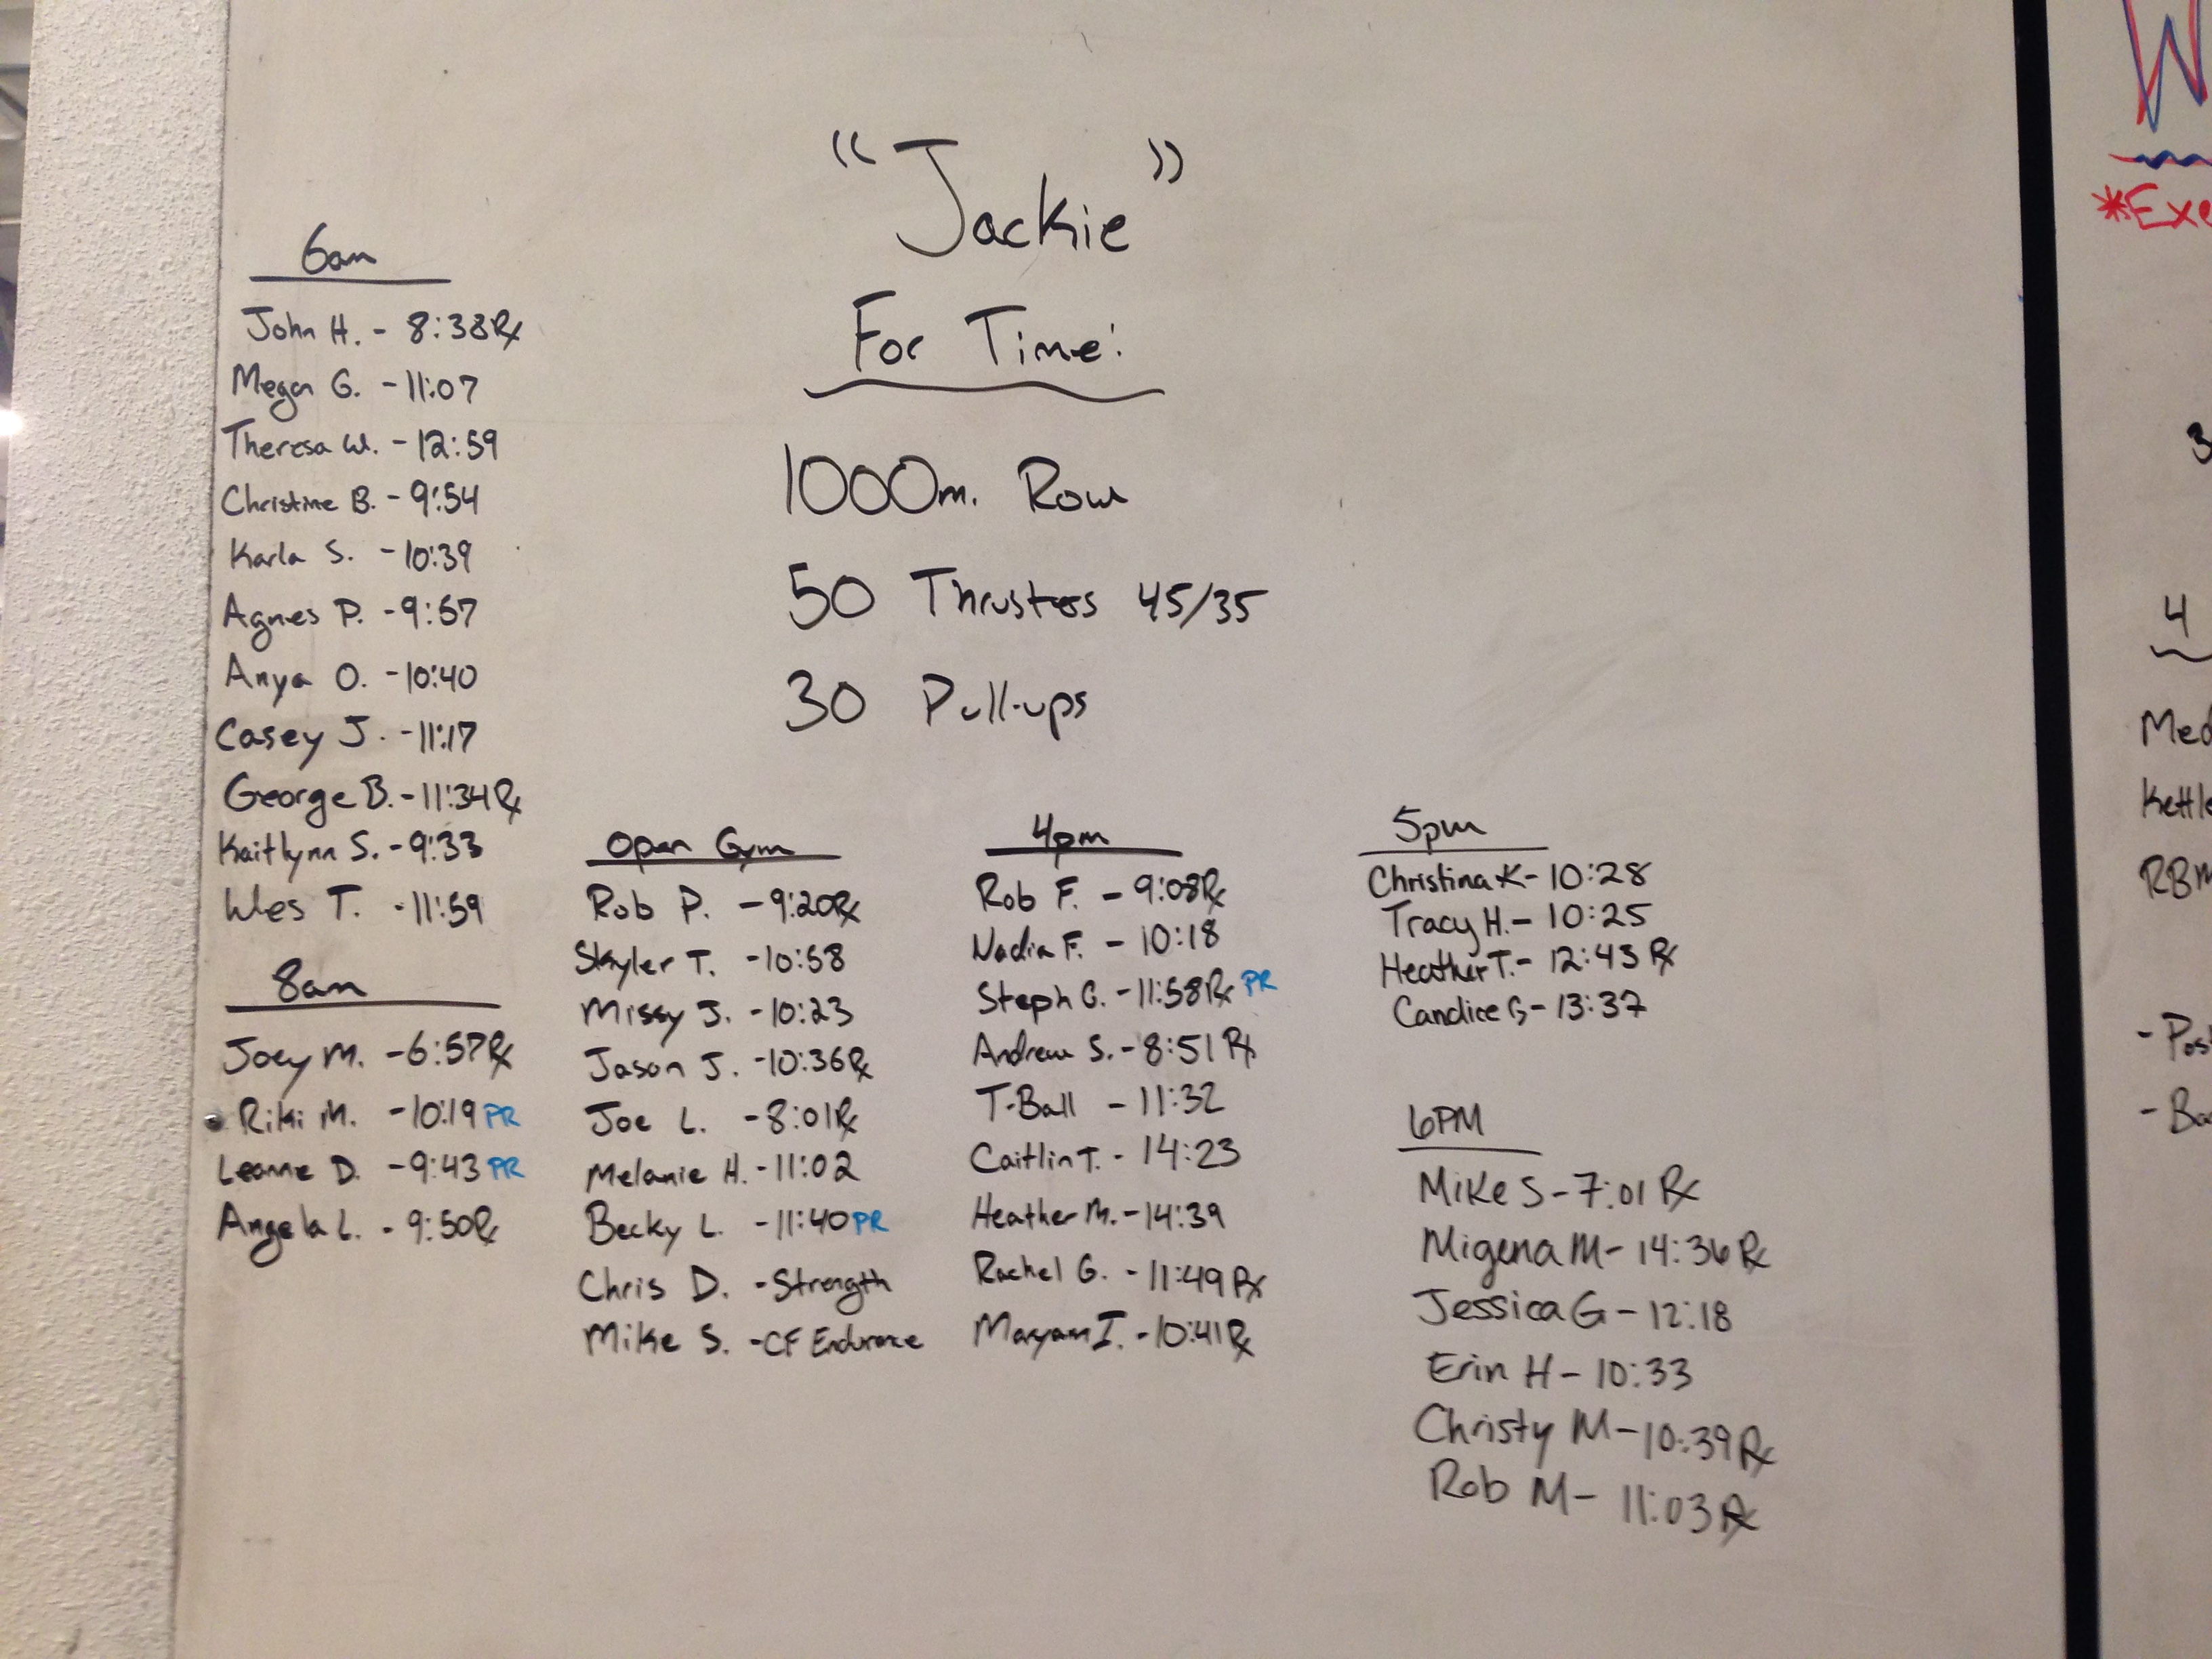 "Jackie"
For Time:
1000m. Row
50 Thrusters 45/35
30 Pull-ups
6am
John H. - 8:38 Rx
Megan G. - 11:07
Theresa W. - 12:59
Christine B. - 9:54
Karla S. - 10:39
Agnes P. - 9:57
Anya O. - 10:40
Casey J. - 11:17
George B. - 11:34 Rx
Kaitlynn S. - 9:33
Wes T. - 11:59
8am
Joey M. - 6:57 Rx
Riki M. - 10:19 PR
Leanne D. - 9:43 PR
Angela L. - 9:50 Rx
Open Gym
Rob P. - 9:20 Rx
Skyler T. - 10:58
Missy J. - 10:23
Jason J. - 10:36 Rx
Joe L. - 8:01 Rx
Melanie H. - 11:02
Becky L. - 11:40 PR
Chris D. - Strength
Mike S. - CF Endurance
4pm
Rob F. - 9:08 Rx
Nadia F. - 10:18
Steph G. - 11:58 Rx PR
Andrew S. - 8:51 Rx
T-Ball - 11:32
Caitlin T. - 14:23
Heather M. - 14:39
Rachel G. - 11:49 Rx
Maryam I. - 10:41 Rx
5pm
Christina K - 10:28
Tracy H. - 10:25
Heather T. - 12:43 Rx
Candice G - 13:37
6PM
Mike S - 7:01 Rx
Migena M - 14:36 Rx
Jessica G - 12:18
Erin H - 10:33
Christy M - 10:39 Rx
Rob M - 11:03 Rx
W
*Exe
3
4
Med
Kettle
RBM
- Post
- Ba